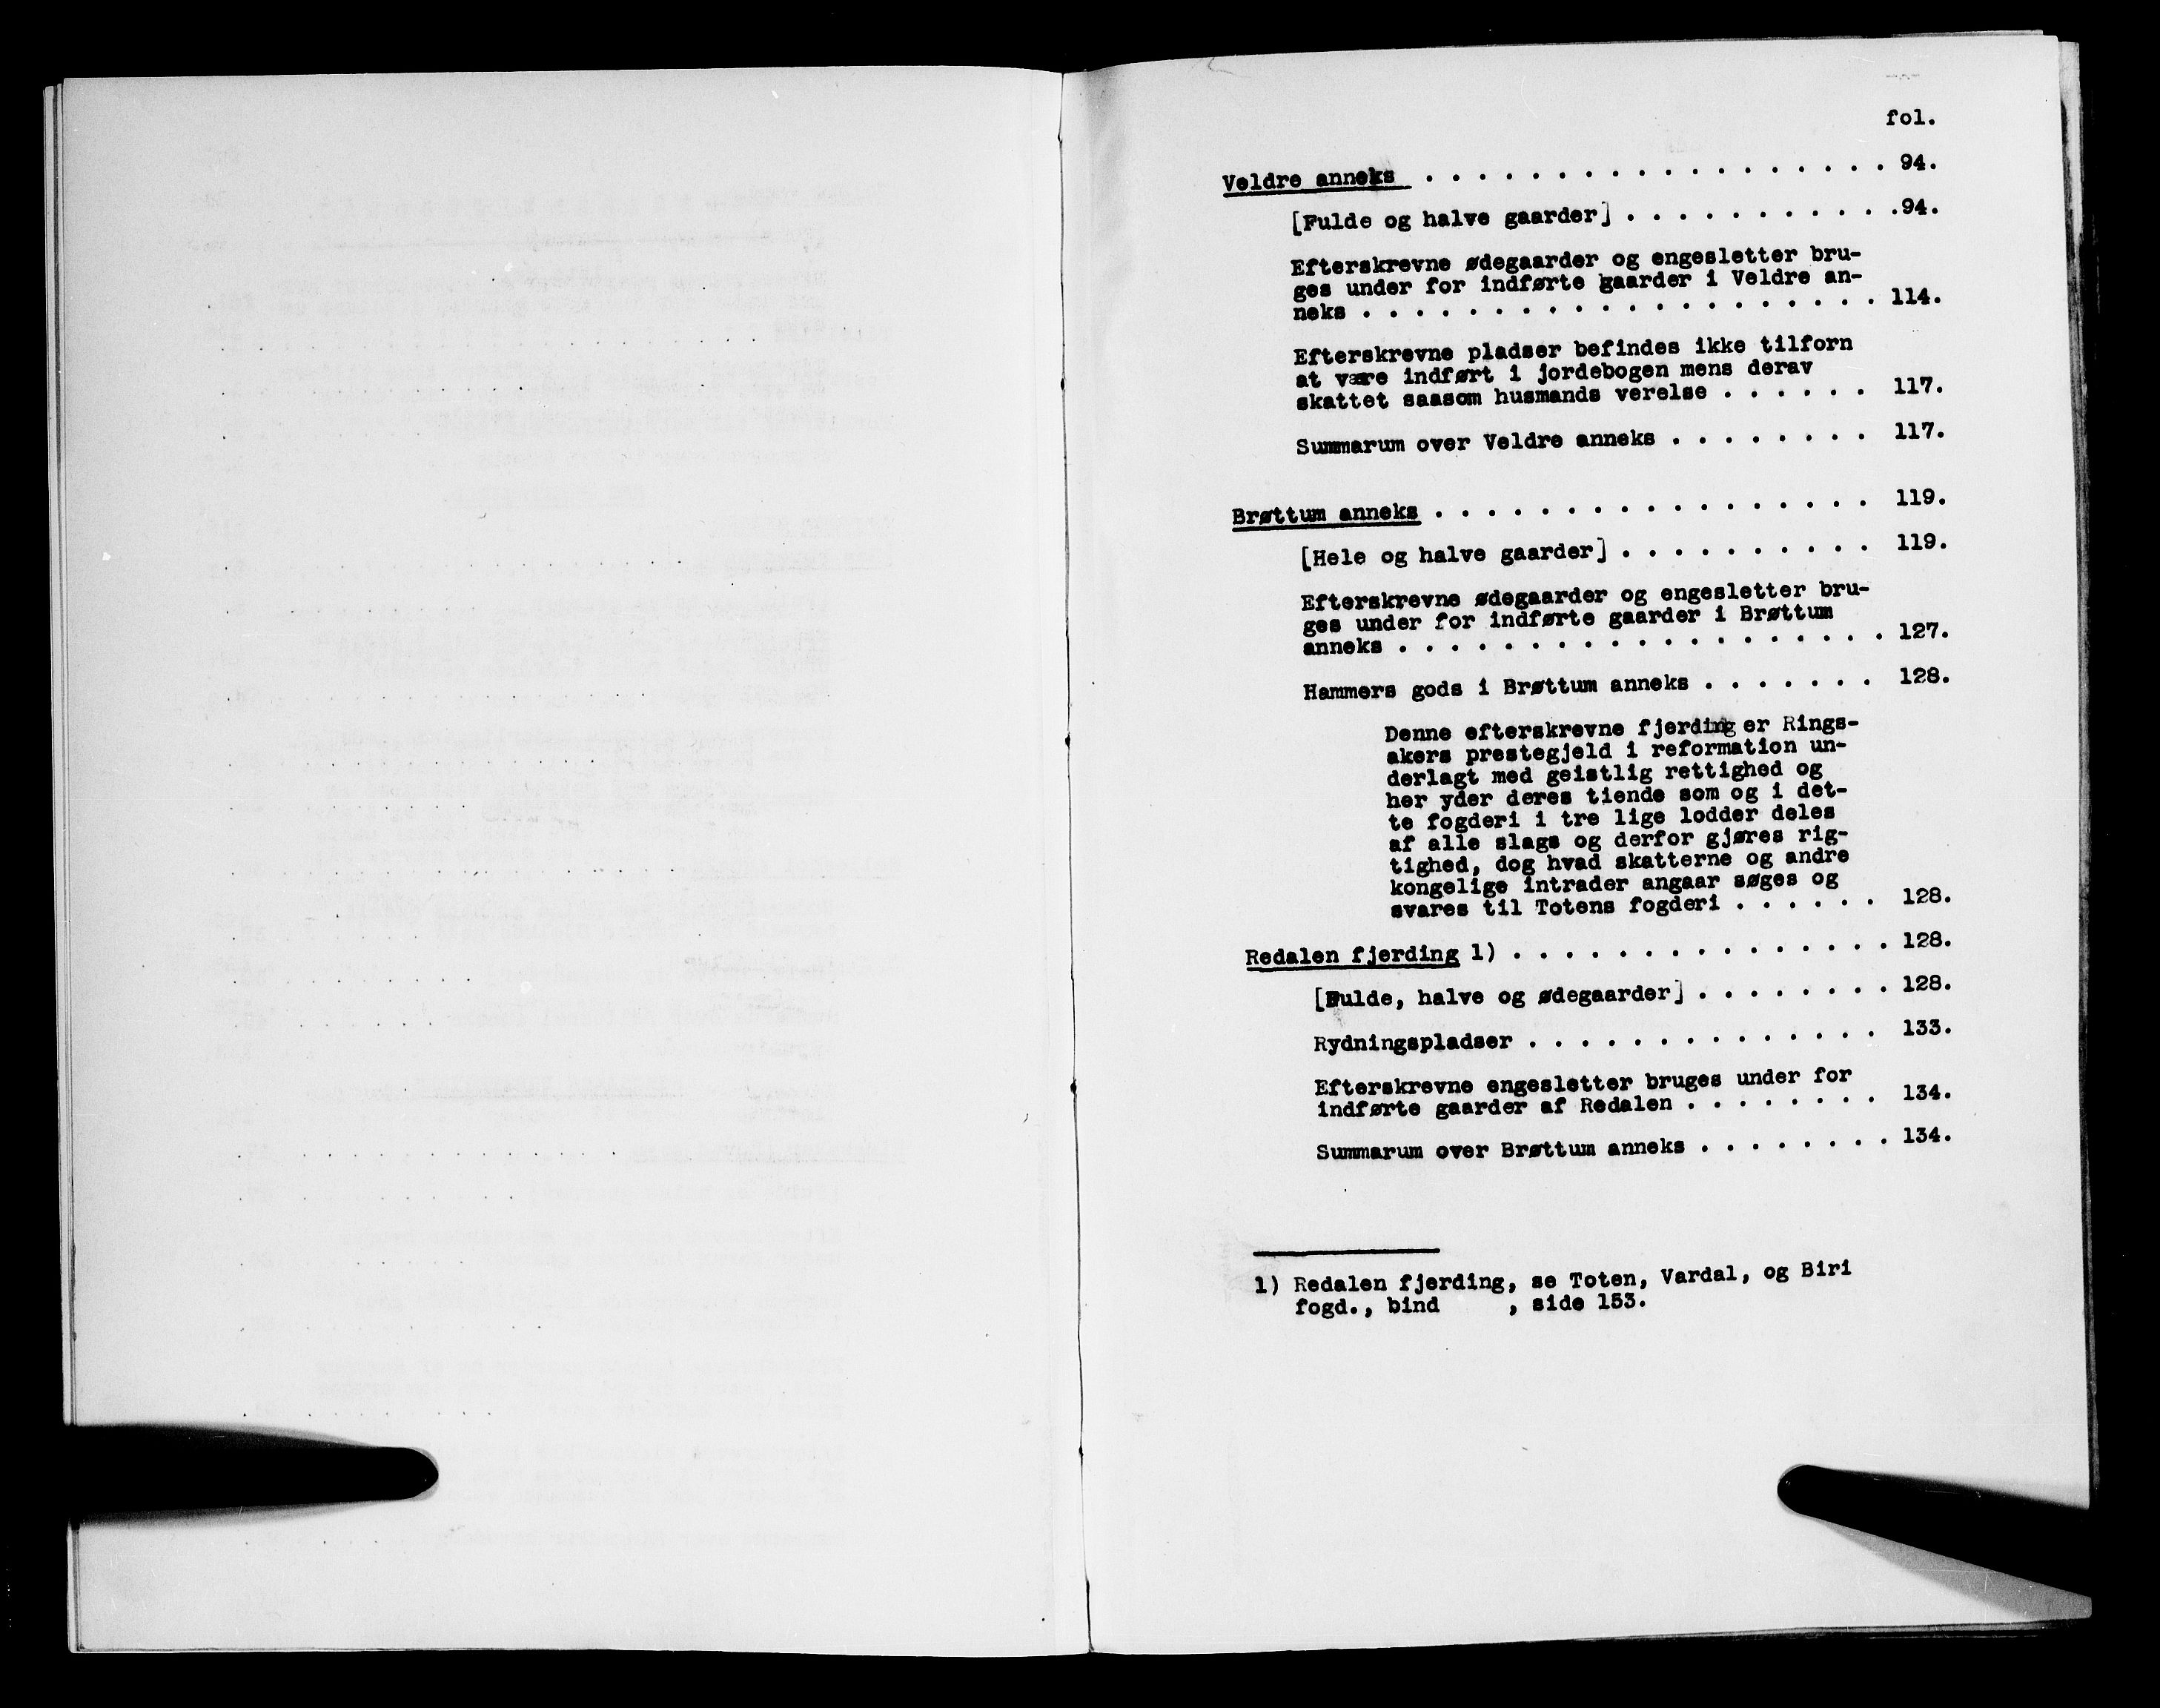 fol.
Veldre anneks . . . . . . . . . . . . . . . . . . 94.
[Fulde og halve gaarder] . . . . . . . . . . .94.
Efterskrevne ødegaarder og engesletter bru-
ges under for indførte gaarder i Veldre an-
neks . . . . . . . . . . . . . . . . . . . . 114.
Efterskrevne pladser befindes ikke tilforn
at være indført i jordebogen mens derav
skattet saasom husmands verelse . . . . . . 117.
Summarum over Veldre anneks . . . . . . . . 117.
Brøttum anneks . . . . . . . . . . . . . . . . . 119.
[Hele og halve gaarder] . . . . . . . . . . 119.
Efterskrevne ødegaarder og engesletter bru-
ges under for indførte gaarder i Brøttum
anneks . . . . . . . . . . . . . . . . . . . 127.
Hammers gods i Brøttum anneks . . . . . . . 128.
Denne efterskrevne fjerding er Rings-
akers prestegjeld i reformation un-
derlagt med geistlig rettighed og
her yder deres tiende som og i det-
te fogderi i tre lige lodder deles
af alle slags og derfor gjøres rig-
tighed, dog hvad skatterne og andre
kongelige intrader angaar søges og
svares til Totens fogderi . . . . . . 128.
Redalen fjerding 1) . . . . . . . . . . . . . . . 128.
[Fulde, halve og ødegaarder] . . . . . . . . 128.
Rydningspladser . . . . . . . . . . . . . . 133.
Efterskrevne engesletter bruges under for
indførte gaarder af Redalen . . . . . . . . 134.
Summarum over Brøttum anneks . . . . . . . . 134.
1) Redalen fjerding, se Toten, Vardal, og Biri
fogd., bind , side 153.